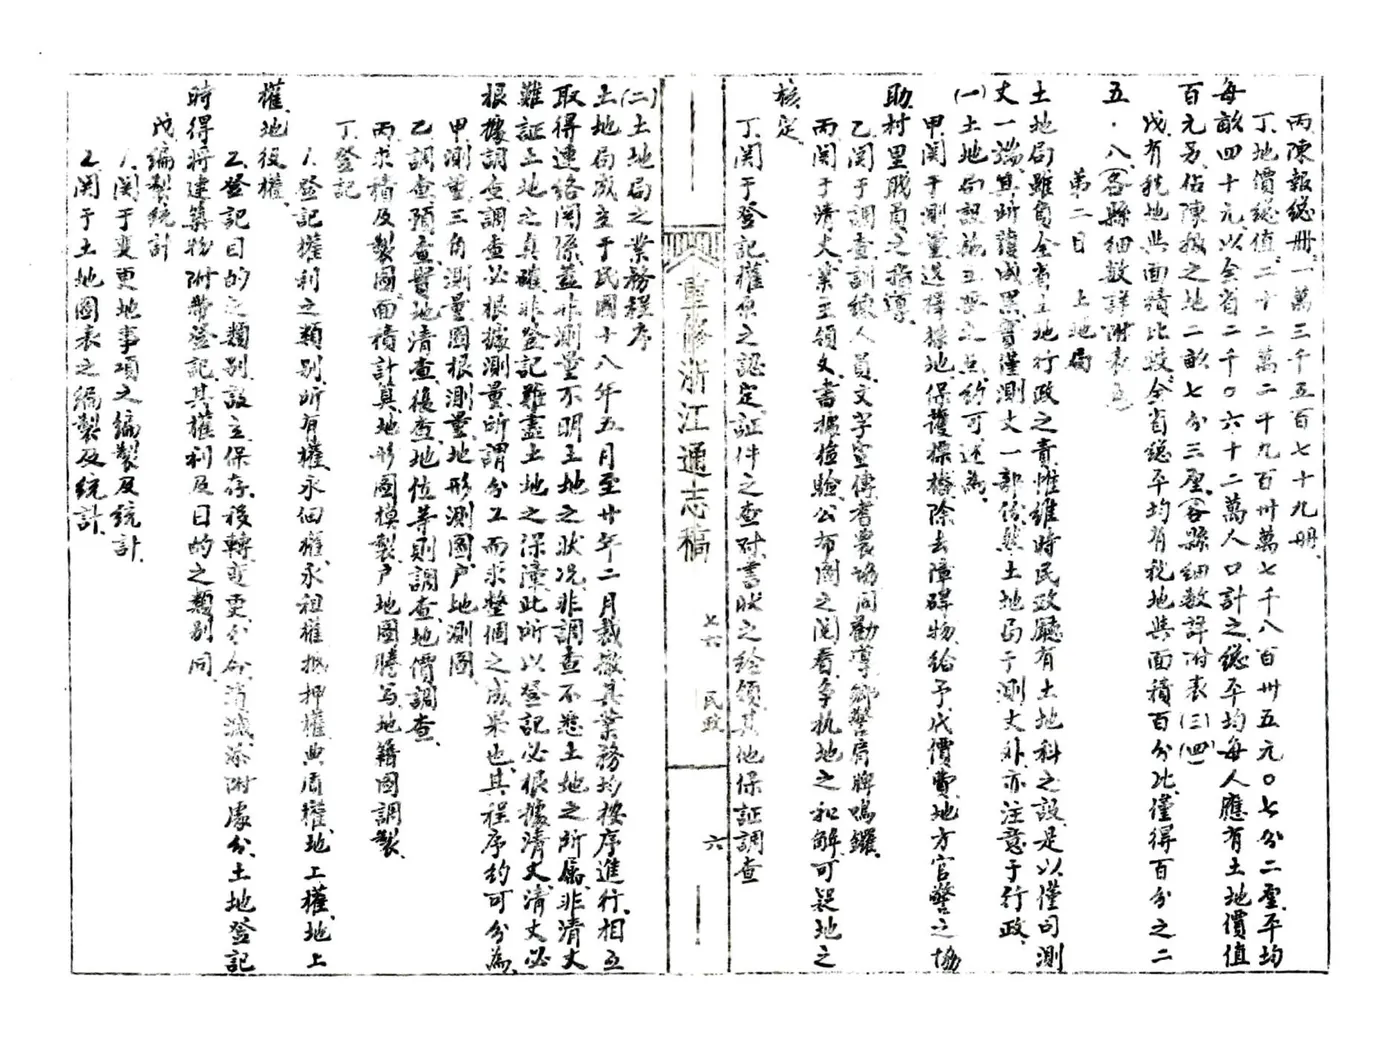 丙、陳報總册、一萬三千五百七十九册、
丁、地價總值、二十二萬二千九百卅萬七千八百卅五元〇七分二厘、平均
每畝四十元、以全省二千〇六十二萬人口計之、總平均每人應有土地價值
百元另、佔陳報之地二畝七分三厘、(各縣細數詳附表(三)(四)
戊、有稅地與面積比較、全省總平均有稅地與面積百分比、僅得百分之二
五・八(各縣細數詳附表
第二目 土地局
土地局雖負全省土地行政之責、惟維時民政廳有土地科之設、是以僅司測
丈一端、其所護成黑實僅測丈一部份、然土地局于測丈外、亦注意于行政、
(一)土地局設施主要之点、約可述為、
甲、関于測量選擇據地、保護標樁、除去障碍物、給予代價費、地方官警之協
助、村里職員之指導、
乙、関于調查訓練人員、文字宣傳、耆農協同勸導、鄉警肩牌鳴鑼、
丙、関于清丈、業主領文書據檢驗、公布圖之閱看、争执地之和解、可疑地之
核定、
丁、関于登記權原之認定、証件之查对、書狀之給領、其他保証調查
重修浙江通志稿
七六
民政
六
(二)土地局之業務程序
土地局成立于民國十八年五月、至廿年二月裁撤、其業務均按序進行、相互
取得連絡関係、蓋非測量不明土地之狀况、非調查不悉土地之所屬、非清丈
難証土地之真確、非登記難盡土地之保障、此所以登記必根據清丈、清丈必
根據調查、調查必根據測量、所謂分工而求整個之成果也、其程序約可分為、
甲、測量、三角測量、圖根測量、地形測圖、户地測圖、
乙、調查、預查、實地清查、復查、地位等則調查、地價調查、
丙、求積及製圖、面積計算、地形圖模製、户地圖謄寫、地籍圖調製、
丁、登記
1、登記權利之類別、所有權、永佃權、永租權、抵押權、典質權、地上權、地上
權、地役權、
2、登記目的之類別、設立、保存、移轉、變更、分合、消滅、添附處分、土地登記
時得將建築物附帶登記、其權利及目的之類别同、
戊、編製統計
1、関于变更地事項之編製及統計、
2、関于土地圖表之編製及統計、